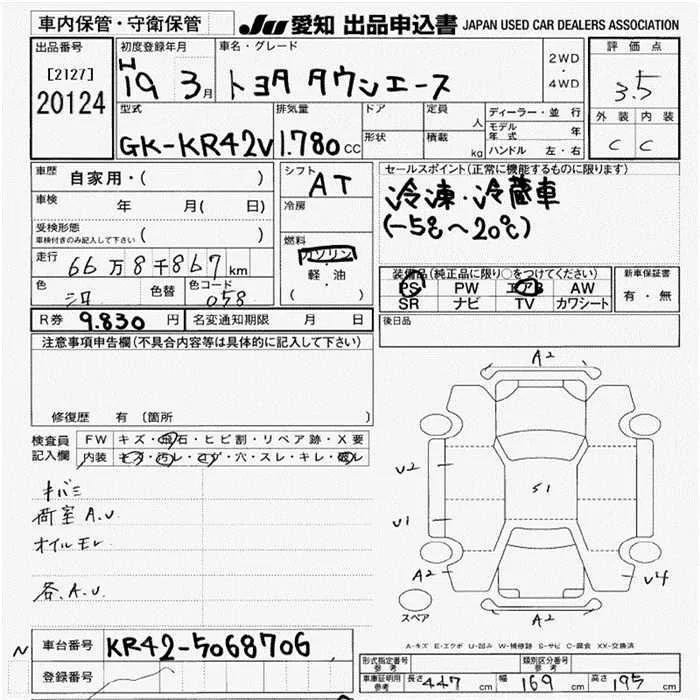 車内保管・守衛保管
JU 愛知 出品申込書 JAPAN USED CAR DEALERS ASSOCIATION
出品番号 初度登録年月 車名・グレード 評価点
[2127] H 2WD
20124 19 3月 トヨタ タウンエース ・ 3.5
4WD
型式 排気量 ドア 定員 人 ディーラー・並行 外装 内装
GK-KR42V 1.780cc 形状 積載 kg モデル年式 年 C C
ハンドル 左・右
車歴 自家用・( ) シフト AT セールスポイント(正常に機能するものに限ります)
車検 年 月( 日) 冷房 冷凍・冷蔵車
受検形態 ( ) (-5℃~20℃)
車検付きのみ記入して下さい
走行 66万8千867km 燃料 ガソリン
・
軽油
( )
装備品(純正品に限り○をつけてください) 新車保証書
色 シロ 色替 色コード 058 PS PW エアB AW 有・無
SR ナビ TV カワシート
R券 9.830円 名変通知期限 月 日 後日品
注意事項申告欄(不具合内容等は具体的に記入して下さい)
修復歴 有 〔箇所 〕
検査員 FW キズ・飛石・ヒビ割・リペア跡・X要
記入欄 内装 キズ・汚レ・コゲ・穴・スレ・キレ・破レ
キバミ
荷室A.U.
オイルモレ
各.A.U.
A2
U2
S1
U1
A2 U4
スペア A2
A-キズ E-エクボ U-凹み W-補修跡 S-サビ C-腐食 XX-交換済
N 車台番号 KR42-5068706
登録番号
形式指定番号 参考 類別区分番号 参考
車庫証明用 参考 長さ 447cm 幅 169cm 高さ 195cm